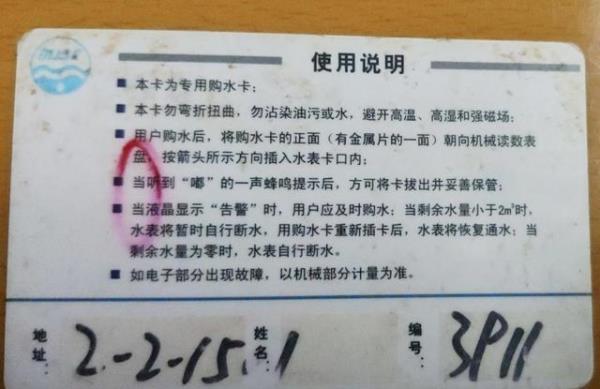 使用说明
■ 本卡为专用购水卡；
■ 本卡勿弯折扭曲，勿沾染油污或水，避开高温、高湿和强磁场；
■ 用户购水后，将购水卡的正面（有金属片的一面）朝向机械读数表
盘，按箭头所示方向插入水表卡口内；
■ 当听到“嘟”的一声蜂鸣提示后，方可将卡拔出并妥善保管；
■ 当液晶显示“告警”时，用户应及时购水；当剩余水量小于2m³时，
水表将暂时自行断水，用购水卡重新插卡后，水表将恢复通水；当
剩余水量为零时，水表自行断水。
■ 如电子部分出现故障，以机械部分计量为准。
地址： 2-2-15.1 姓名： 编号： 3P11